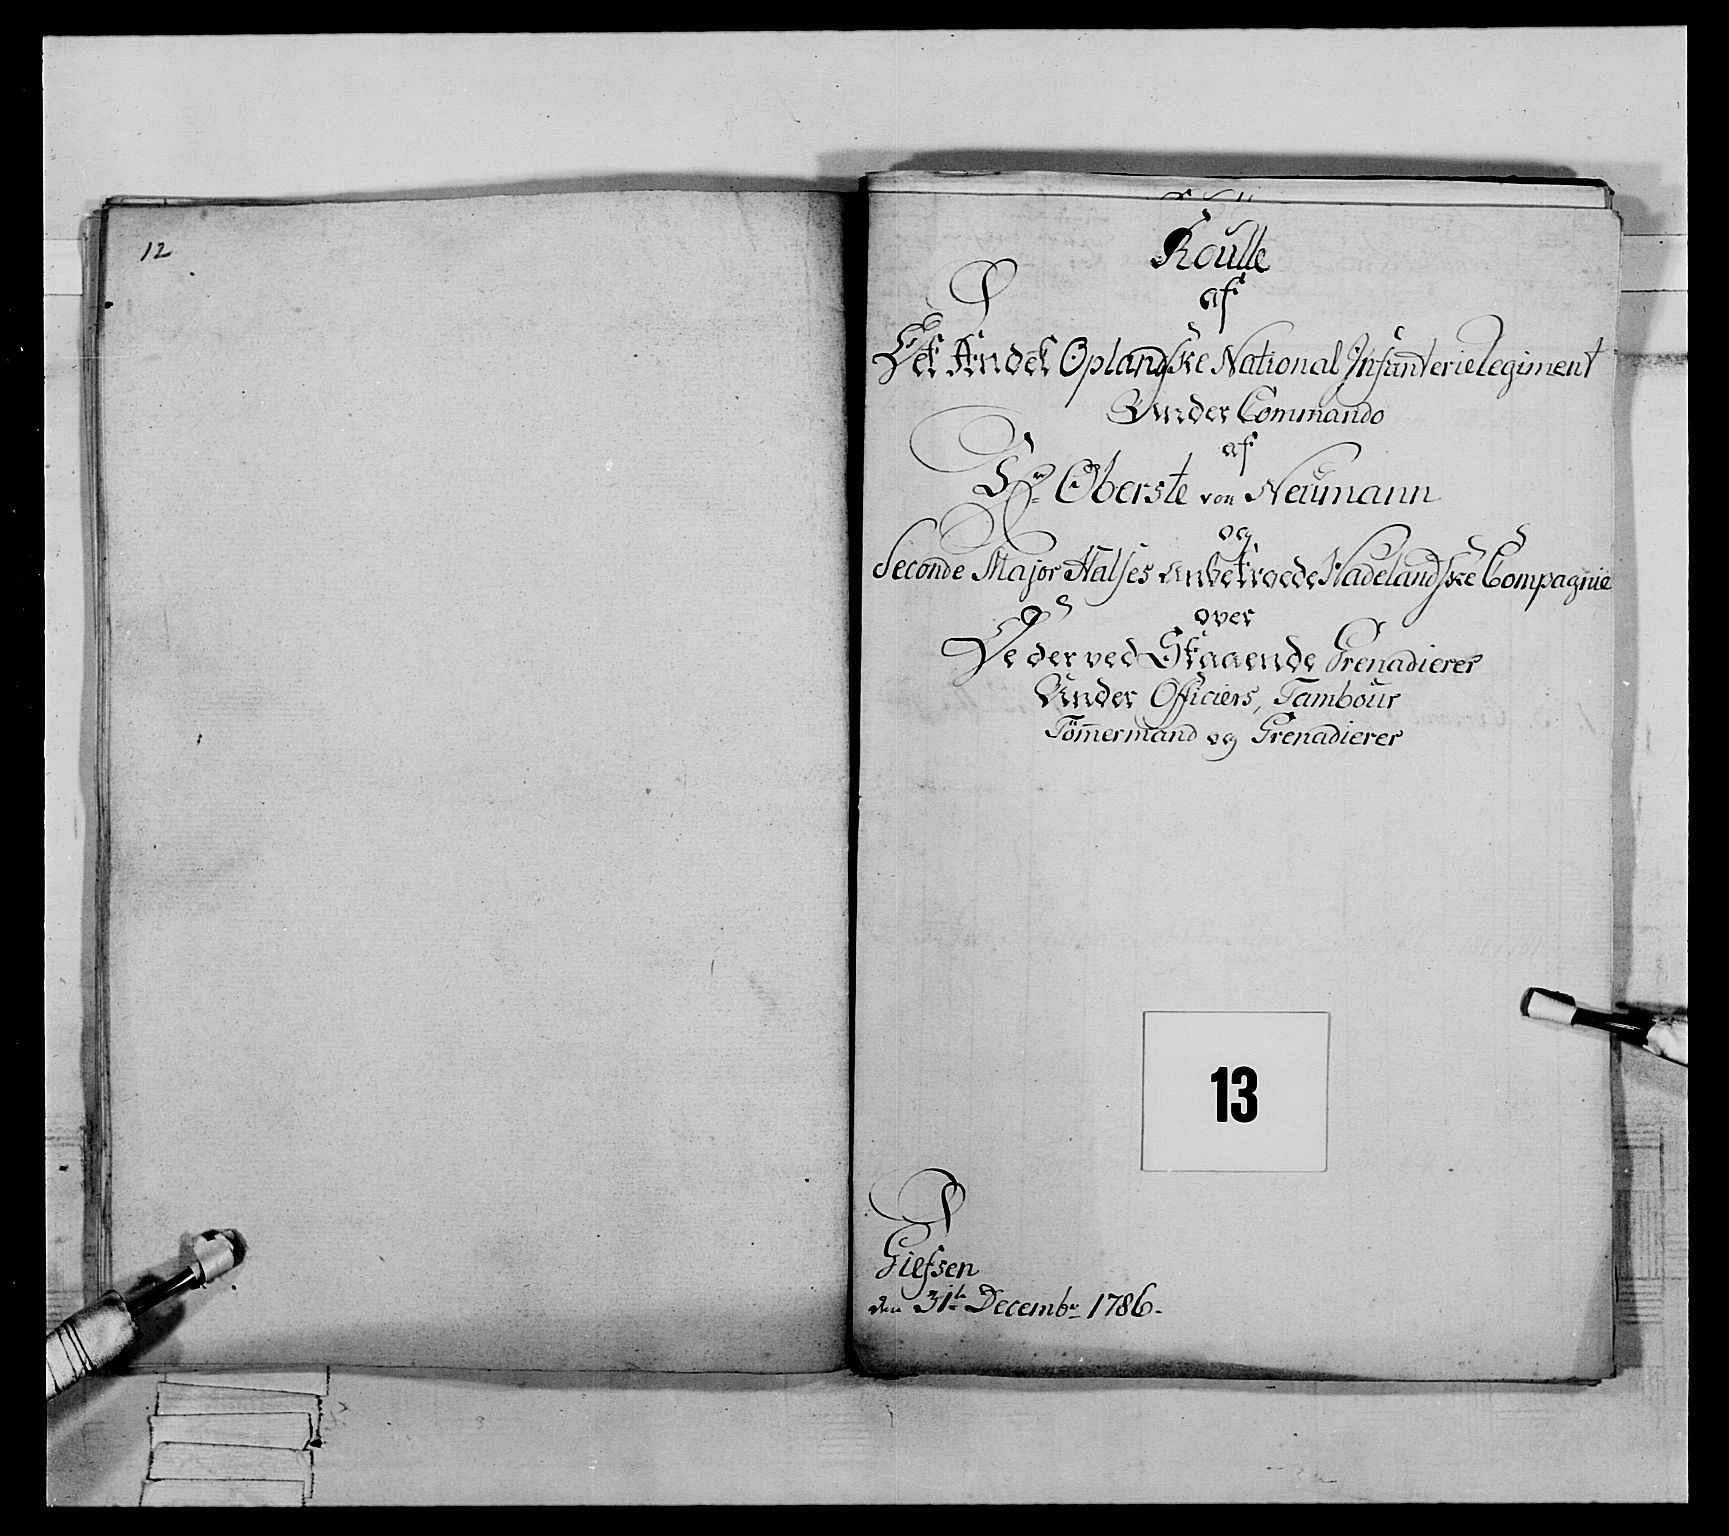 12
Roulle
af
Det Andet Oplandske National Infanterie Regiment
Under Commando
af
Hr. Oberste von Neumann
og
Seconde Major Halses anbetroede Hadelandske Compagnie
over
De der ved Staaende Grenadierer
Under Officiers, Tambour
Tömermand og Grenadierer
13
Giefsen
den 31te Decembr 1786.